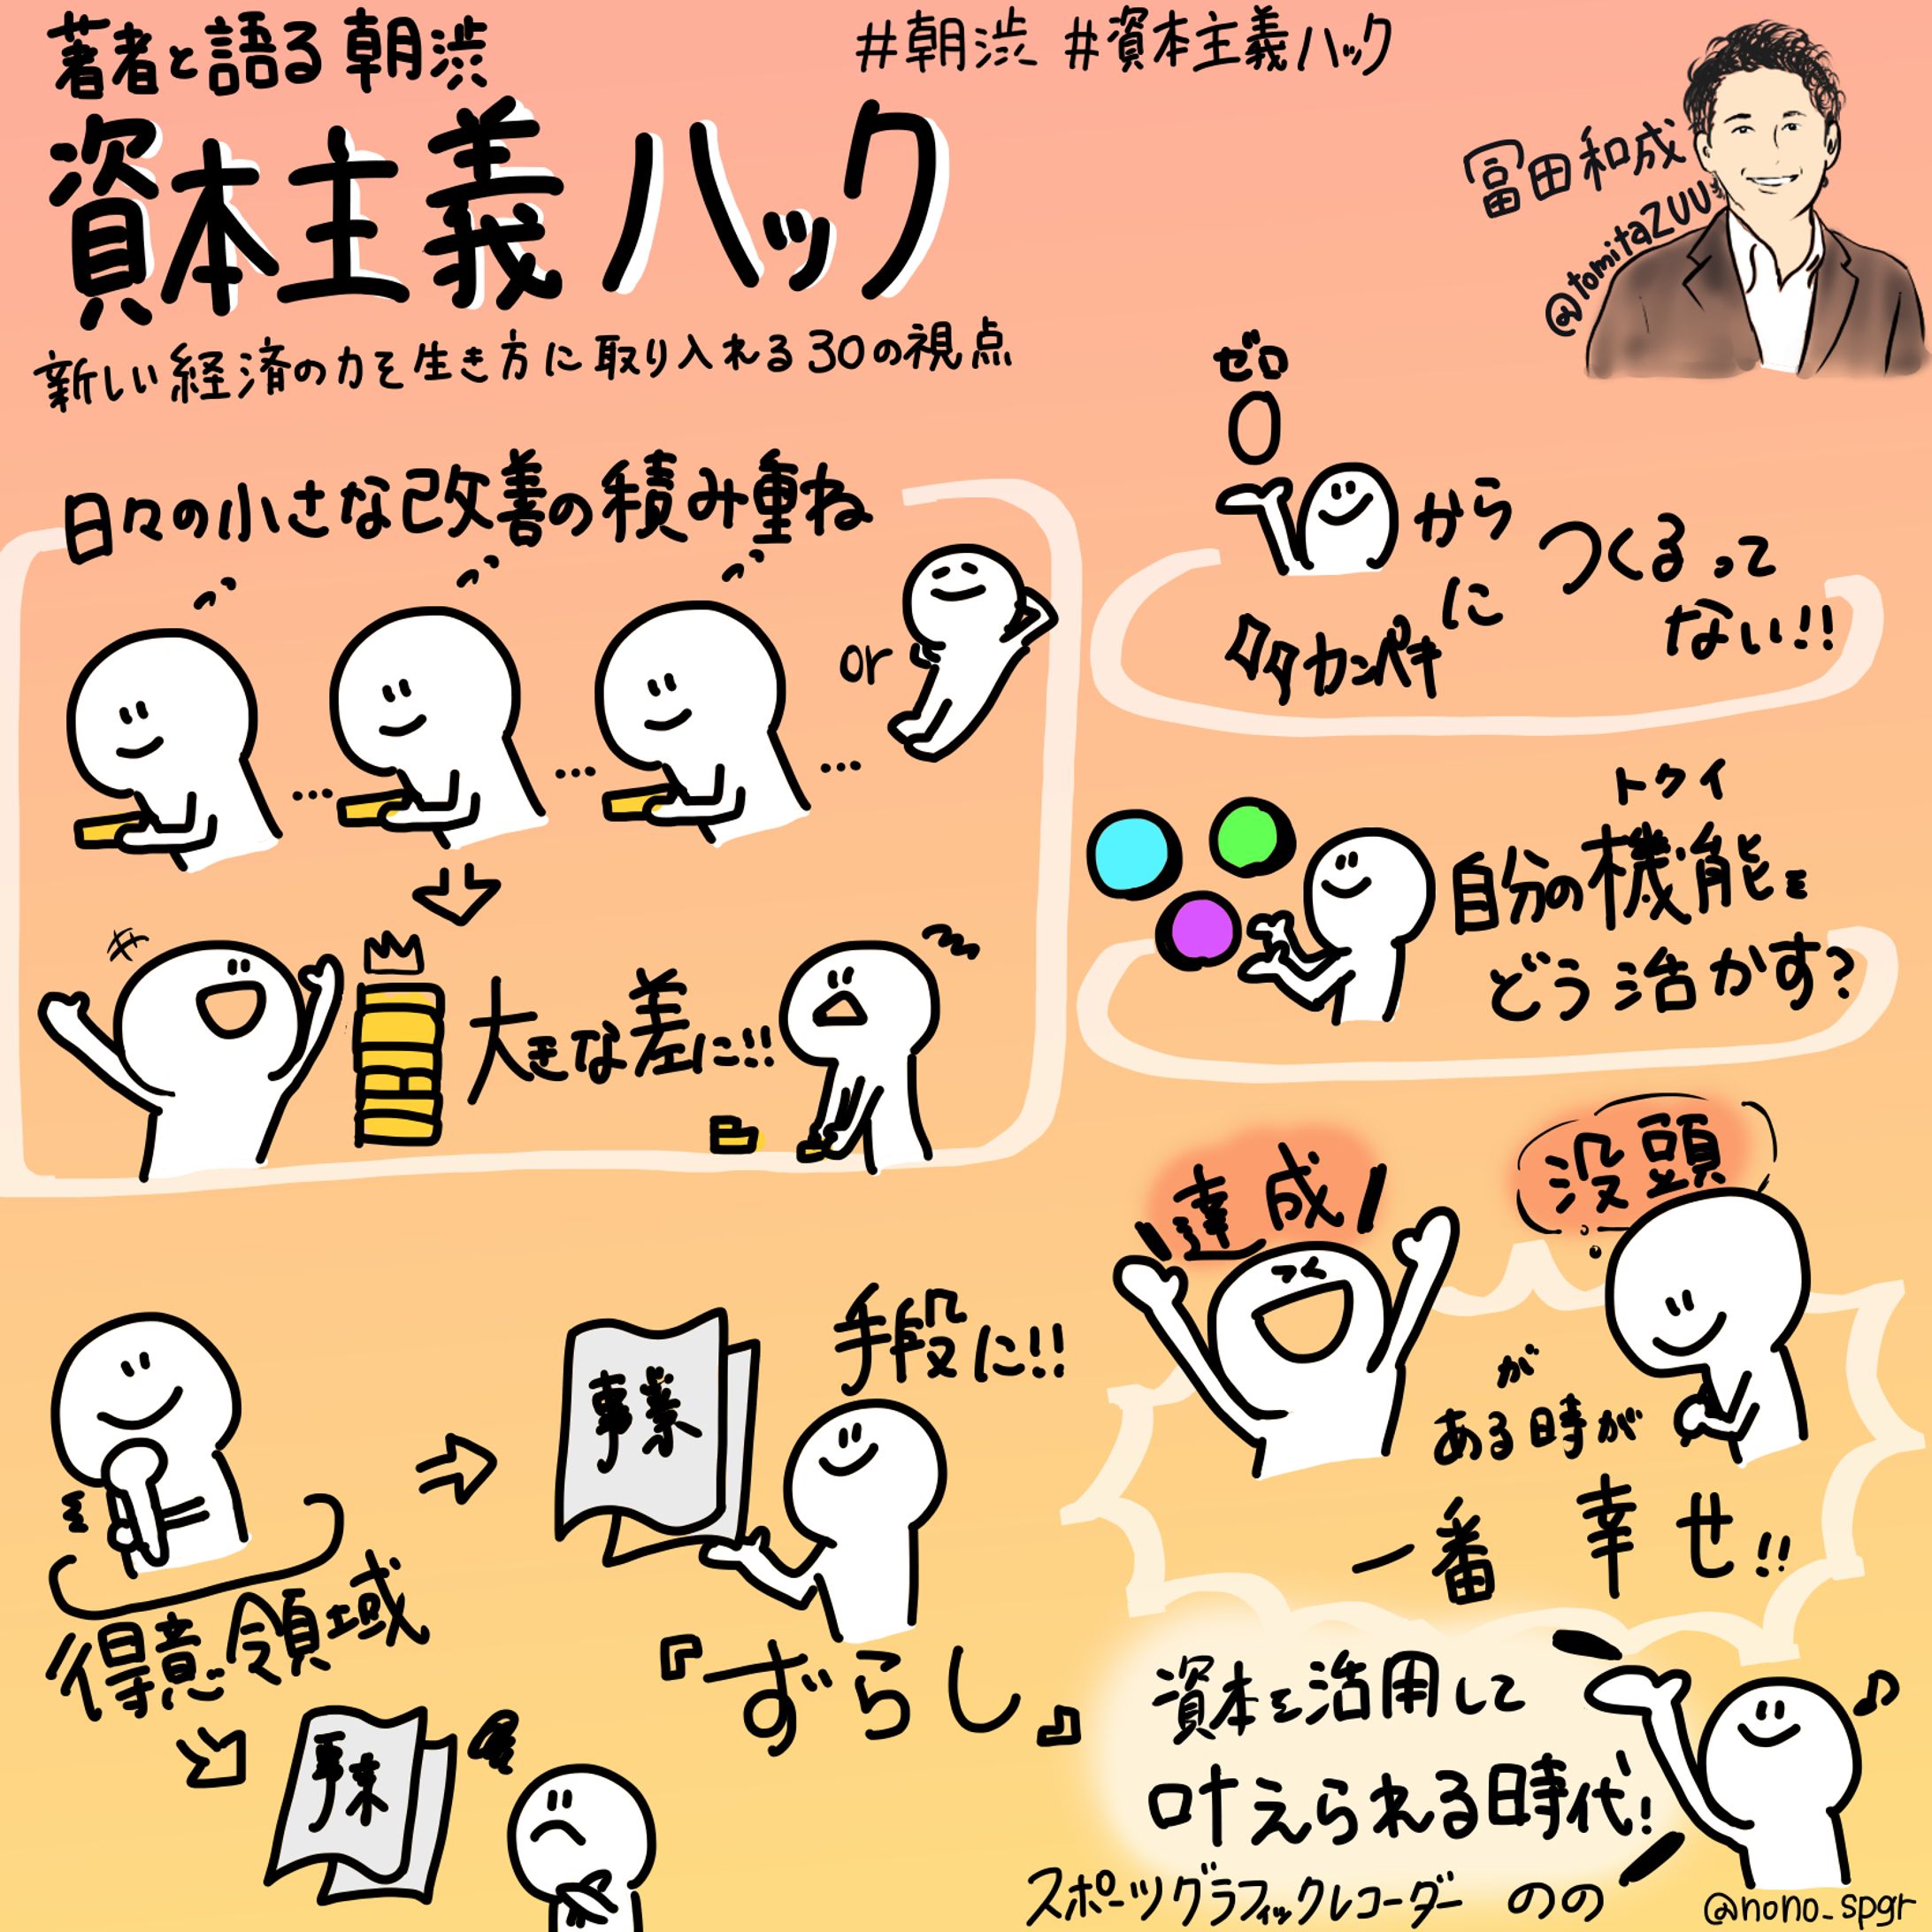 著者と語る朝渋
#朝渋 #資本主義ハック
資本主義ハック
新しい経済の力を生き方に取り入れる30の視点
冨田和成
@tomitaZUU
日々の小さな改善の積み重ね
or
大きな差に!!
ゼロ
0
から
に
カンペキ
つくるって
ない!!
トクイ
自分の機能を
どう活かす?
達成
没頭
が
ある時が
一番 幸せ!!
得意領域
事業
手段に!!
『ずらし』
事業
資本を活用して
叶えられる時代!
スポーツグラフィックレコーダー のの @nono_spgr